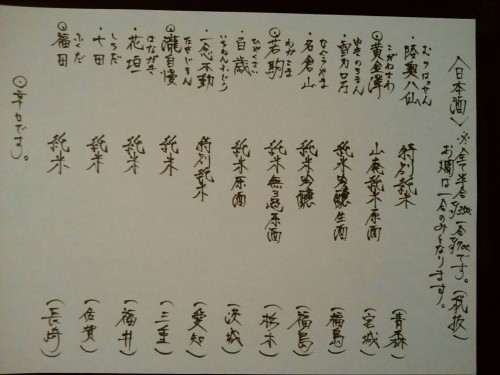 〈日本酒〉※全て半合350 一合700です。(税抜)
お燗は一合のみとなります。
むつはっせん
・陸奥八仙 特別純米 (青森)
こがねさわ
◎黄金澤 山廃純米原酒 (宮城)
・雪 ロ万 純米吟醸生酒 (福島)
なぐらやま
・名倉山 純米吟醸 (福島)
わかこま
◎若駒 純米無ろ過原酒 (栃木)
ひゃくさい
・百歳 純米原酒 (茨城)
いちねんふどう
・一念不動 特別純米 (愛知)
たきじまん
◎瀧自慢 純米 (三重)
はながき
・花垣 純米 (福井)
しちだ
・七田 純米 (佐賀)
ふくだ
◎福田 純米 (長崎)
◎幸せです。